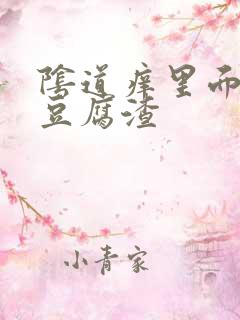 陰道痒里而
豆腐渣
小青家